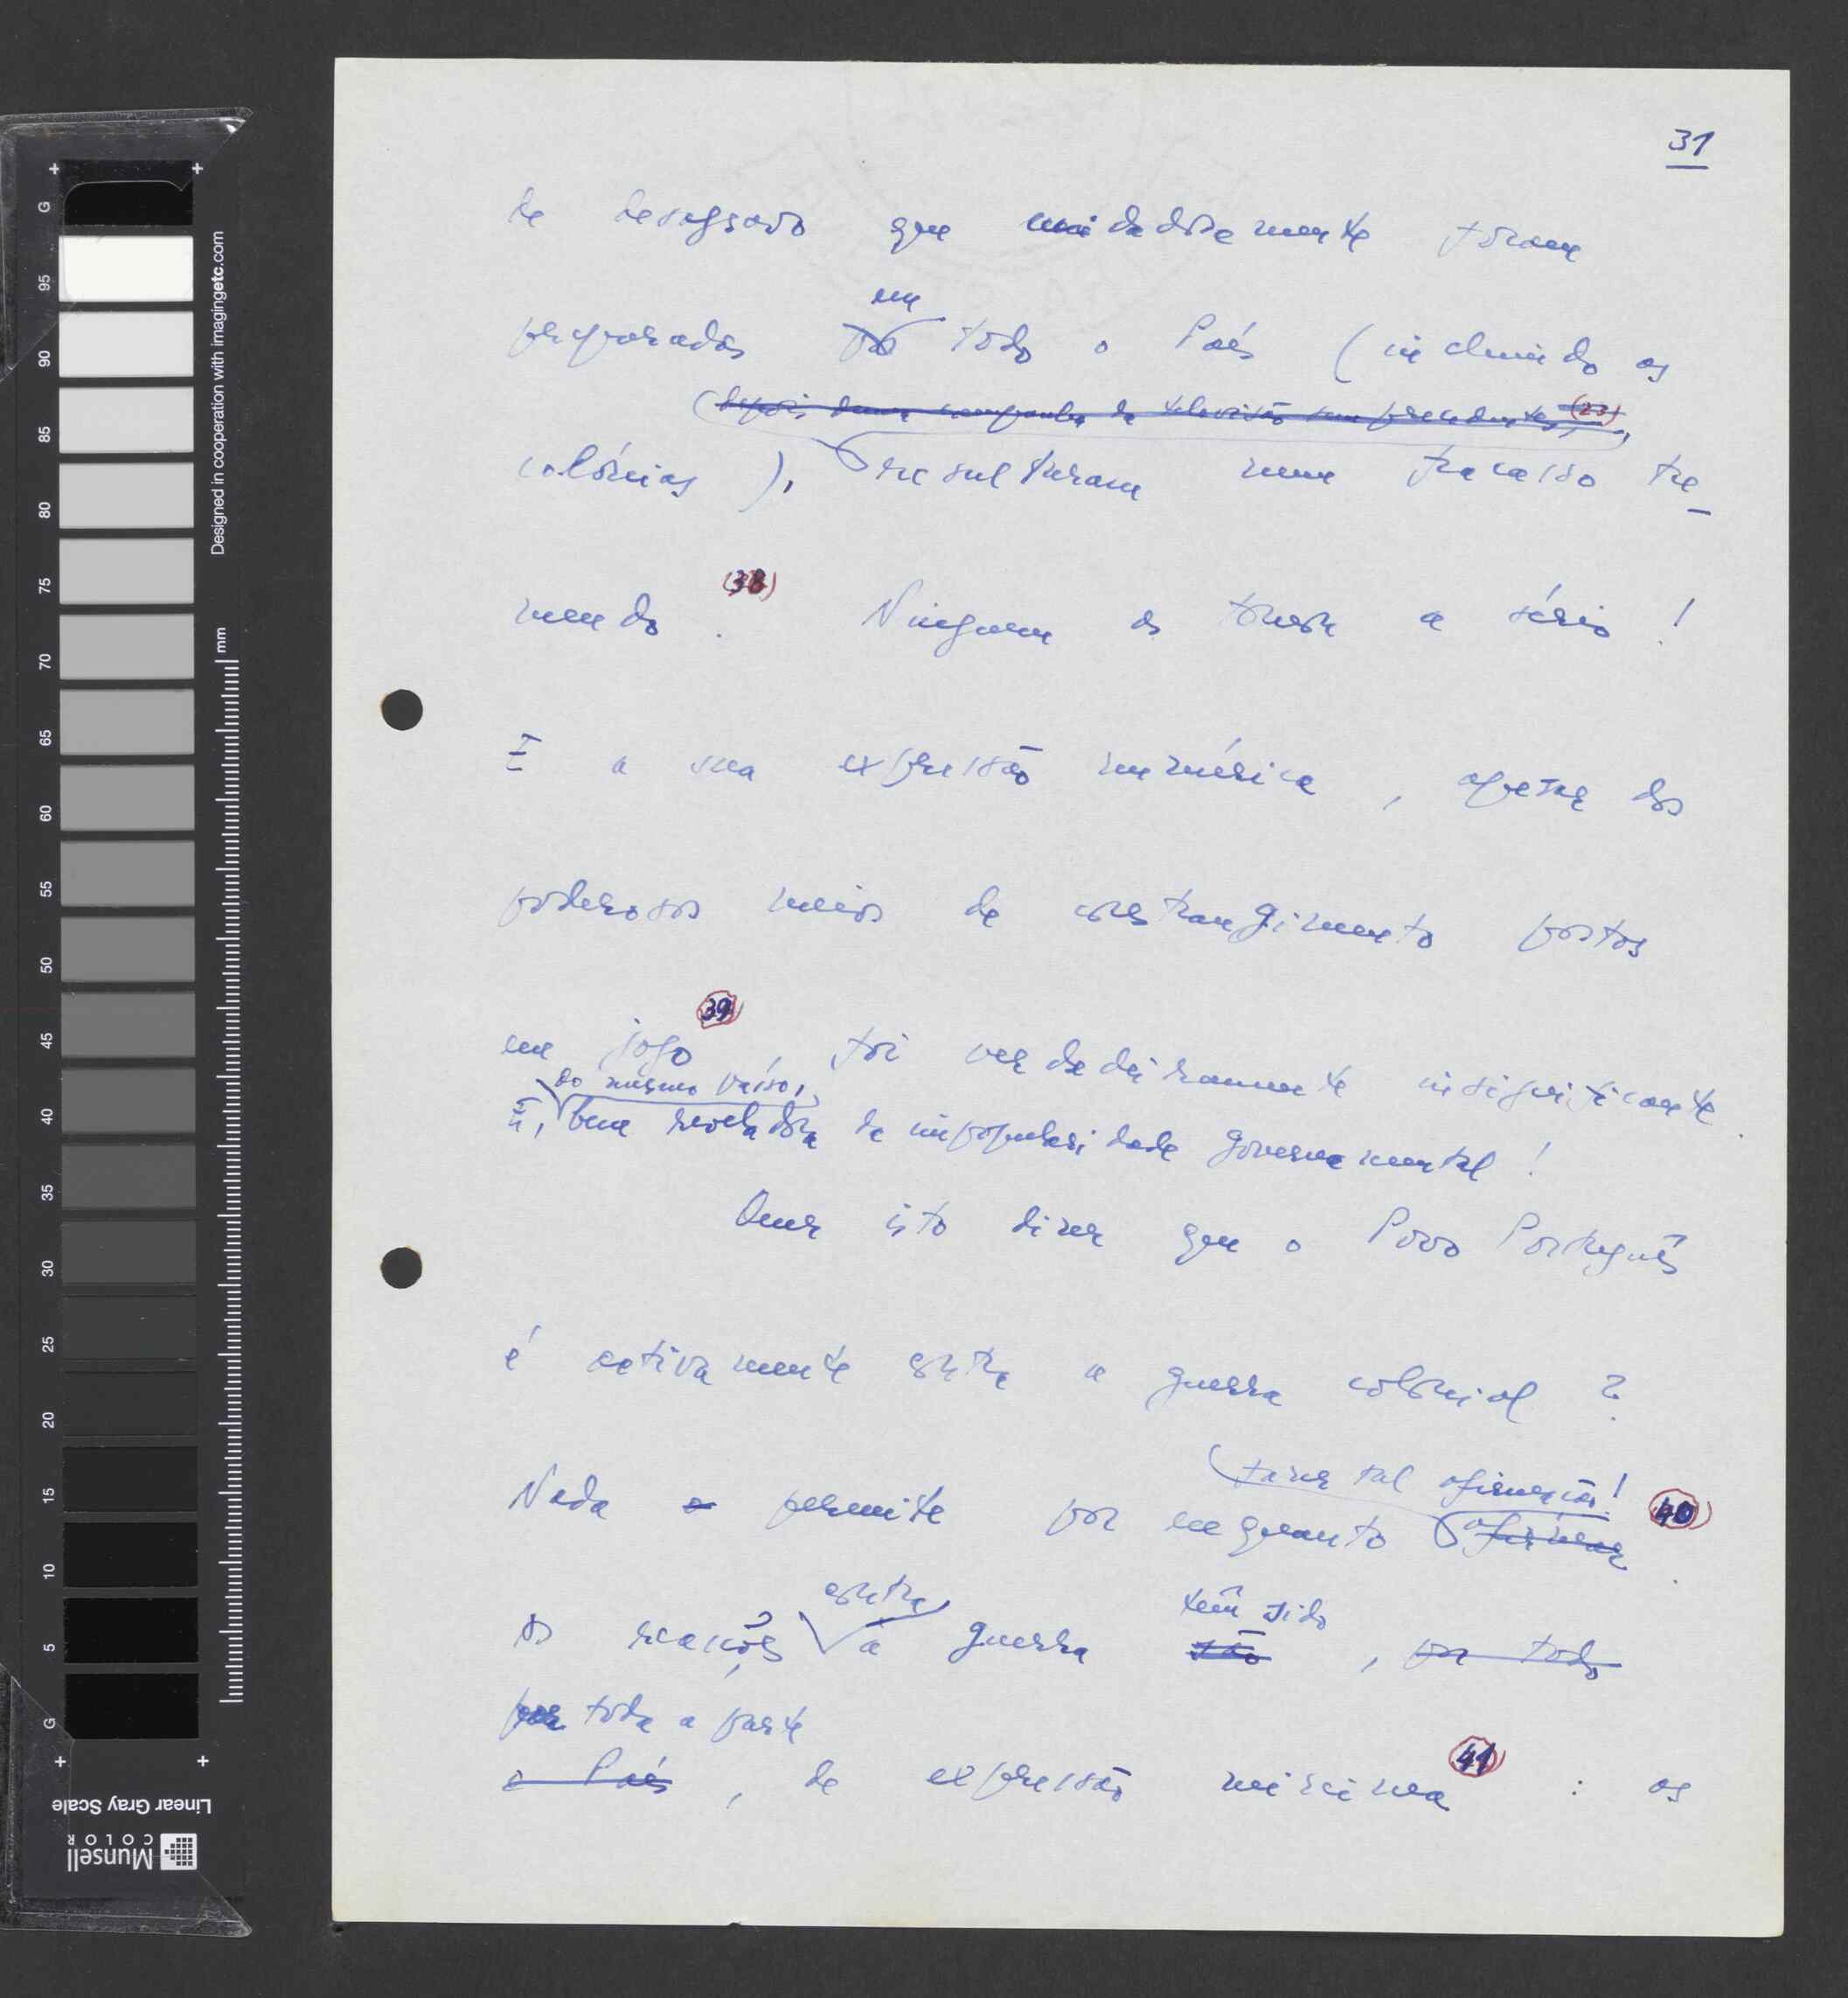 31
de desagravo que cuidadosamente foram
em
preparados por todo o País (incluindo as
(depois duma campanha de televisão sem precedentes, (23)
colónias), resultaram num fracasso tre-
mendo (38). Ninguem os tomou a sério!
E a sua expressão numérica, apesar dos
poderosos meios de constrangimento postos
em jogo (39), foi verdadeiramente insignificante
ao mesmo tempo,
E, bem reveladora da impopularidade governamental!
Quer isto dizer que o Povo Português
é activamente contra a guerra colonial?
fazer tal afirmação! (40)
Nada permite por enquanto afirmar
contra
têm sido
As reacções à guerra são, por todo
por toda a parte
o País, de expressão mínima (41): os
Designed in cooperation with imagingetc.com
mm
G 95 90 85 80 75 70 65 60 55 50 45 40 35 30 25 20 15 10 5 G
Linear Gray Scale
Munsell
COLOR